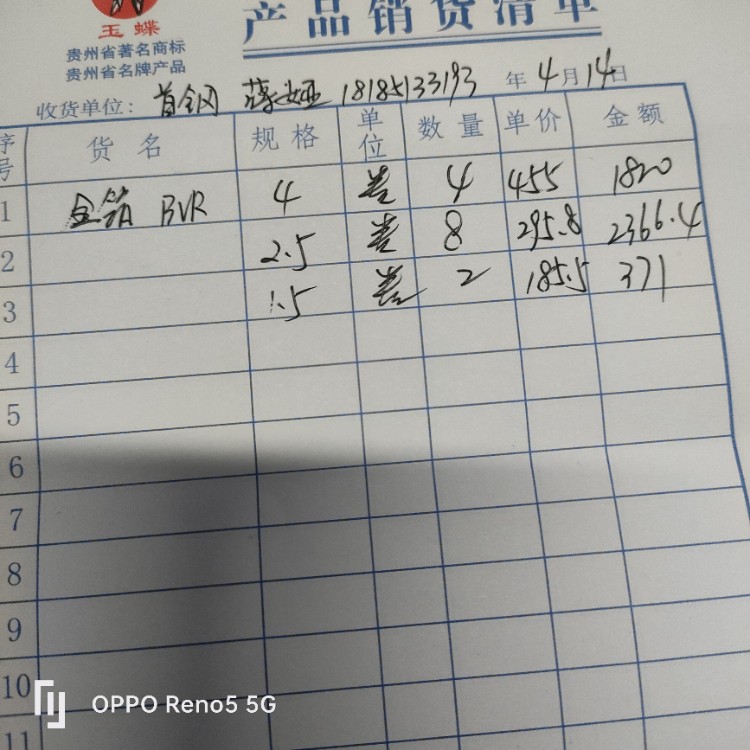 产品销货清单
玉蝶
贵州省著名商标
贵州省名牌产品
收货单位: 首钢 18185133193 年 4 月 14 日
序号 货名 规格 单位 数量 单价 金额
1 金箔 BVR 4 卷 4 455 1820
2 2.5 卷 8 295.8 2366.4
3 1.5 卷 2 185.5 371
4
5
6
7
8
9
10
11
OPPO Reno5 5G